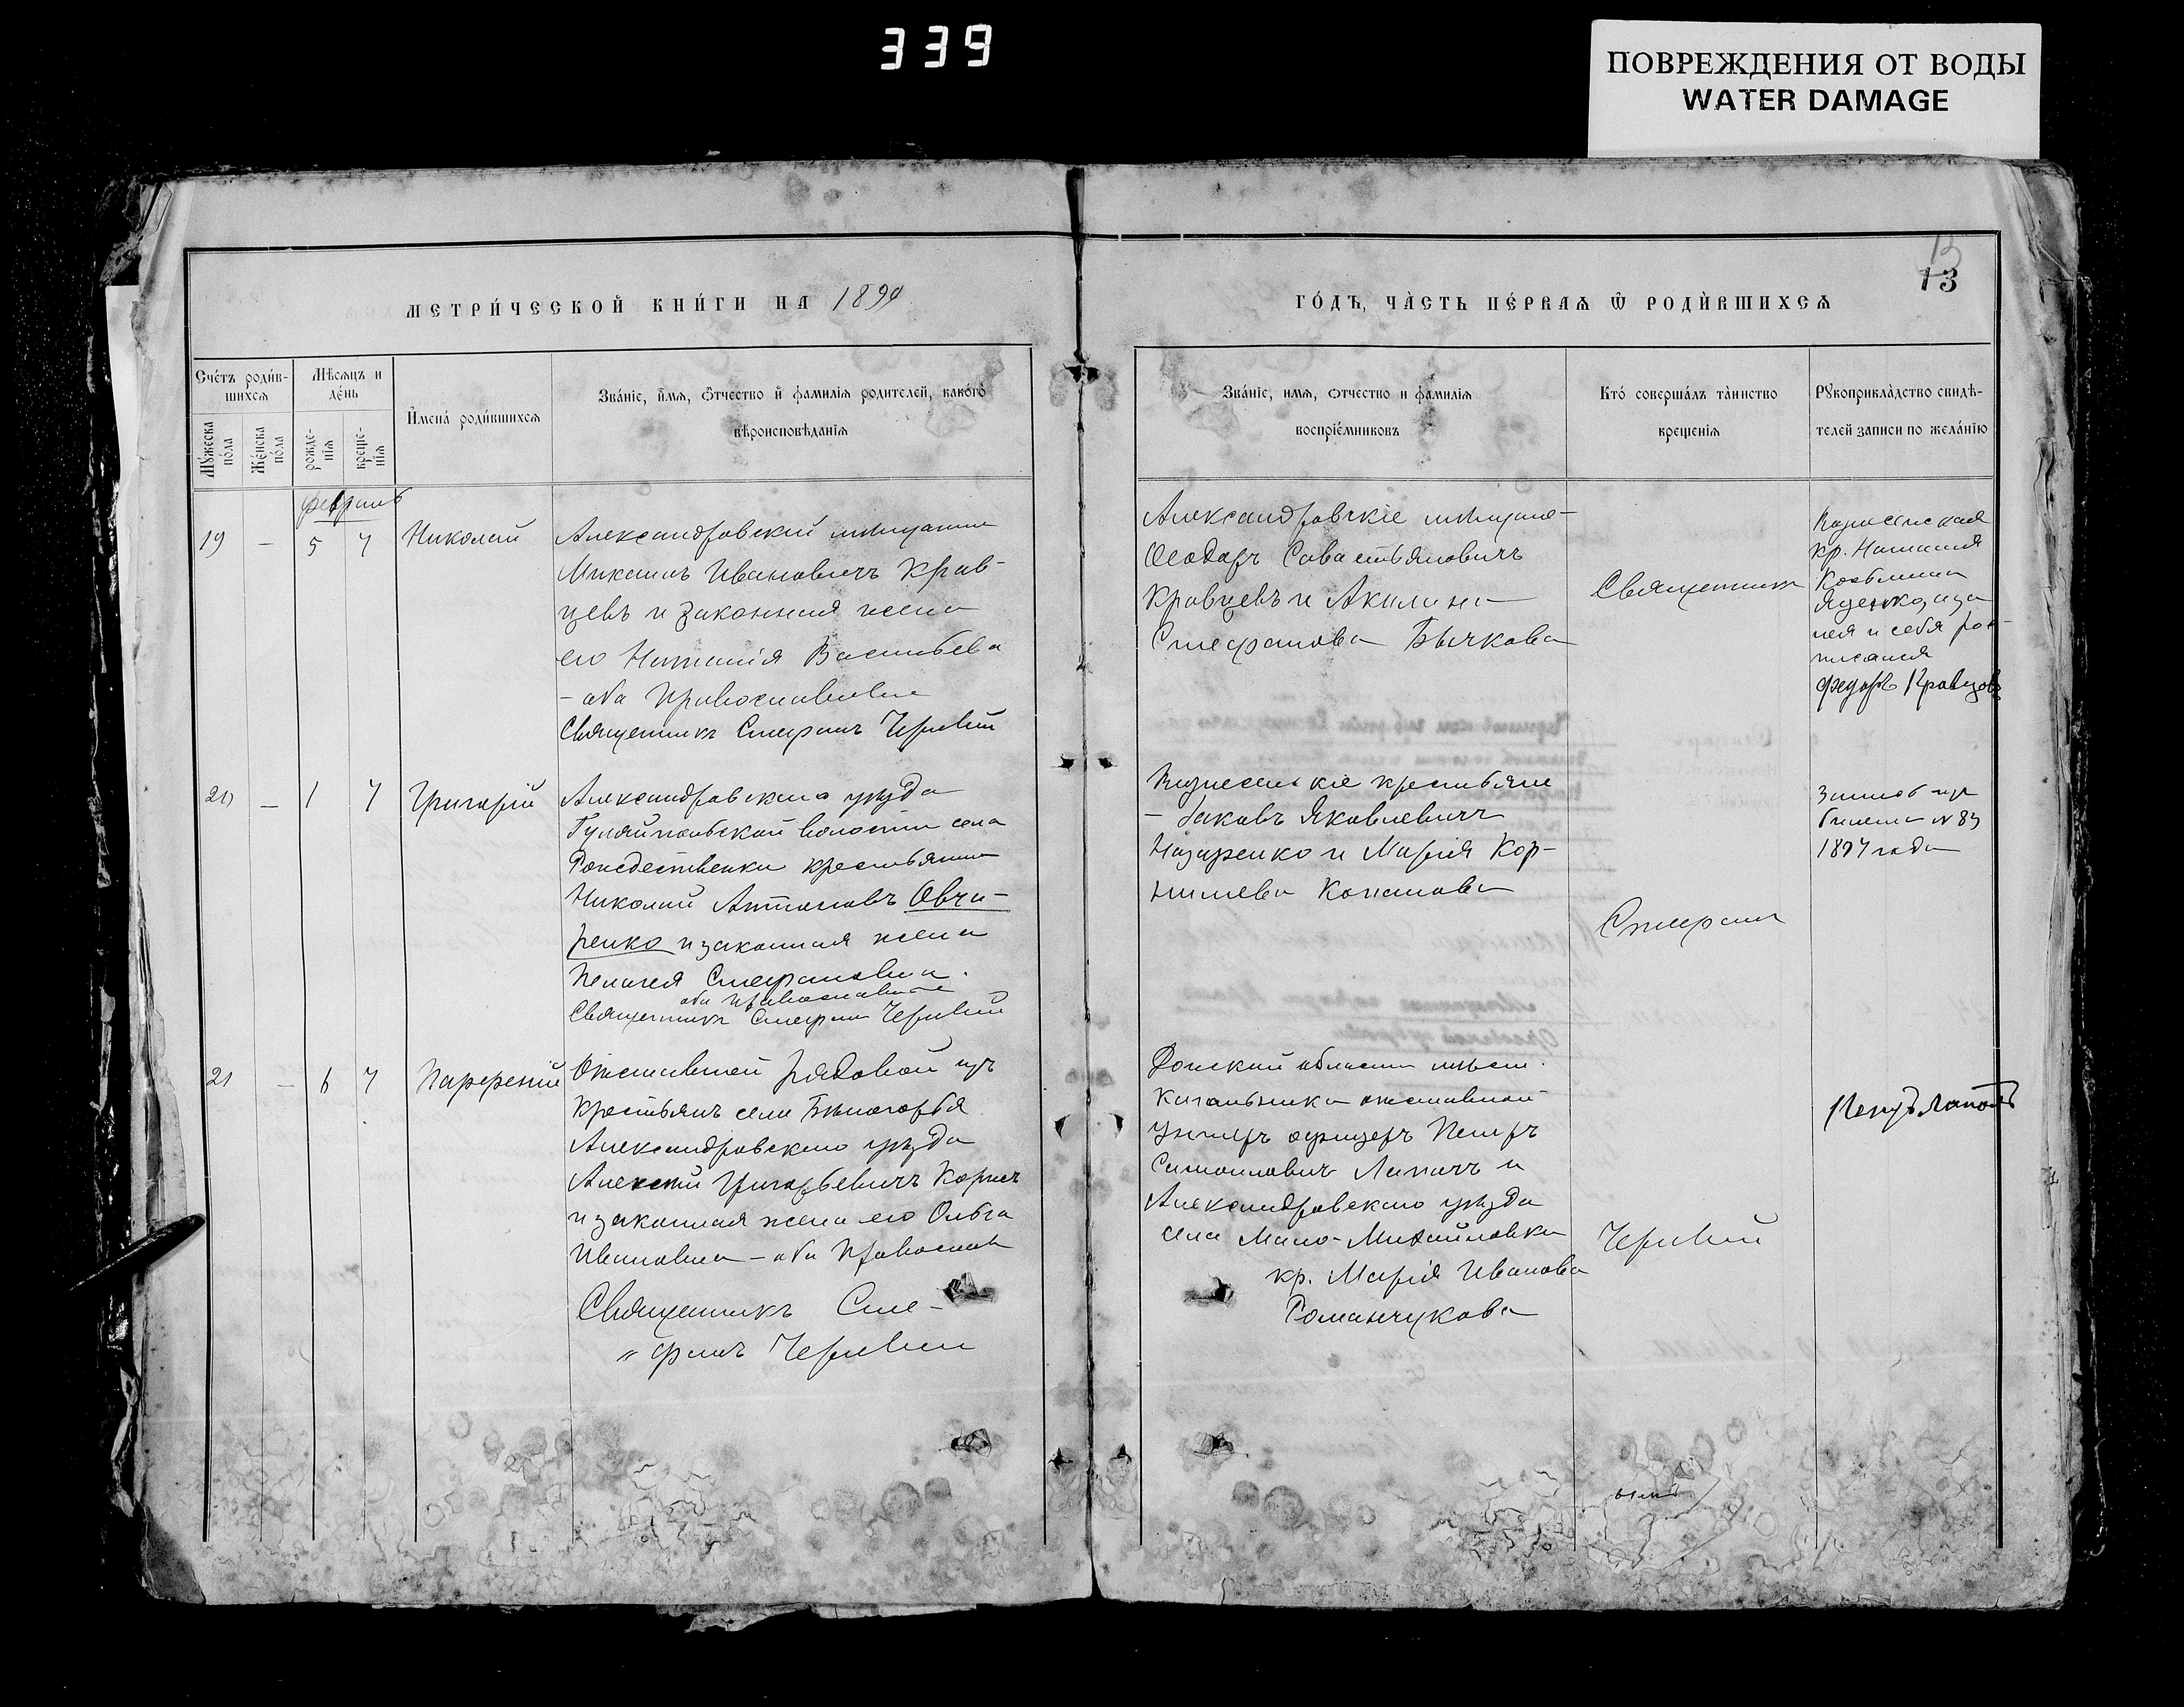 339
ПОВРЕЖДЕНИЯ ОТ ВОДЫ
WATER DAMAGE
13
13
МЕТРИ́ЧЕСКОЙ КНИ́ГИ НА 1890
ГО́ДЪ, ЧА́СТЬ ПЕ́РВАЯ Ѿ РОДИ́ВШИХСЯ
Сче́тъ роди́в-
шихся
Мѣсяцъ и
де́нь
Мꙋжеска
по́ла
Же́нска
по́ла
рожде-
нїя
креще-
нїя
Имена́ роди́вшихся
Зва́нїе, имя, ѻтчество и фамилїя родителей, како́гѡ
вѣроисповѣданїя
Зва́нїе, имя, ѻтчество и фамилїя
воспрїе́мниковъ
Кто́ соверша́лъ та́инство
крещенїя
Рꙋкоприкла́дство свидѣ-
телей записи по жела́нїю
Февраль
19 — 5 7 Николай
Александровский мѣщанин
Михаилъ Ивановичъ Крав-
цевъ и законная жена
его Наталія Васильева
— оба православные
Священникъ Стефанъ
Александровскіе мѣщане-
Ѳеодоръ Савастьяновичъ
Кравцевъ и Акилина
Стефанова Бычкова
Священникъ
кр. Наталия
нея и себя рос-
писался
Федоръ Кравцовъ
20 — 1 7 Григорій
Александровскаго уѣзда
Гуляйпольской волости села
Рождественки крестьянин
Николай Антоновъ Овча-
ренко и законная жена
Пелагея Стефановна.
оба православные
Священникъ Стефан
Вознесенскіе крестьяне
— Іаковъ Яковлевичъ
Назаренко и Марія Кор-
нилева
Стефан
билета № 89
1897 года
21 — 6 7 Парфеній
Отставной рядовой изъ
крестьянъ села Бѣлогорья
Александровскаго уѣзда
Алексѣй Григорьевичъ
и законная жена его Ольга
Ивановна — оба православ
Священникъ Сте-
„ фанъ
Донской области мѣст.
Кагальника отставной
унтеръ офицеръ Петръ
Самойловичъ и
Александровскаго уѣзда
села Мало-Михайловки
кр. Марія Иванова
Романчукова